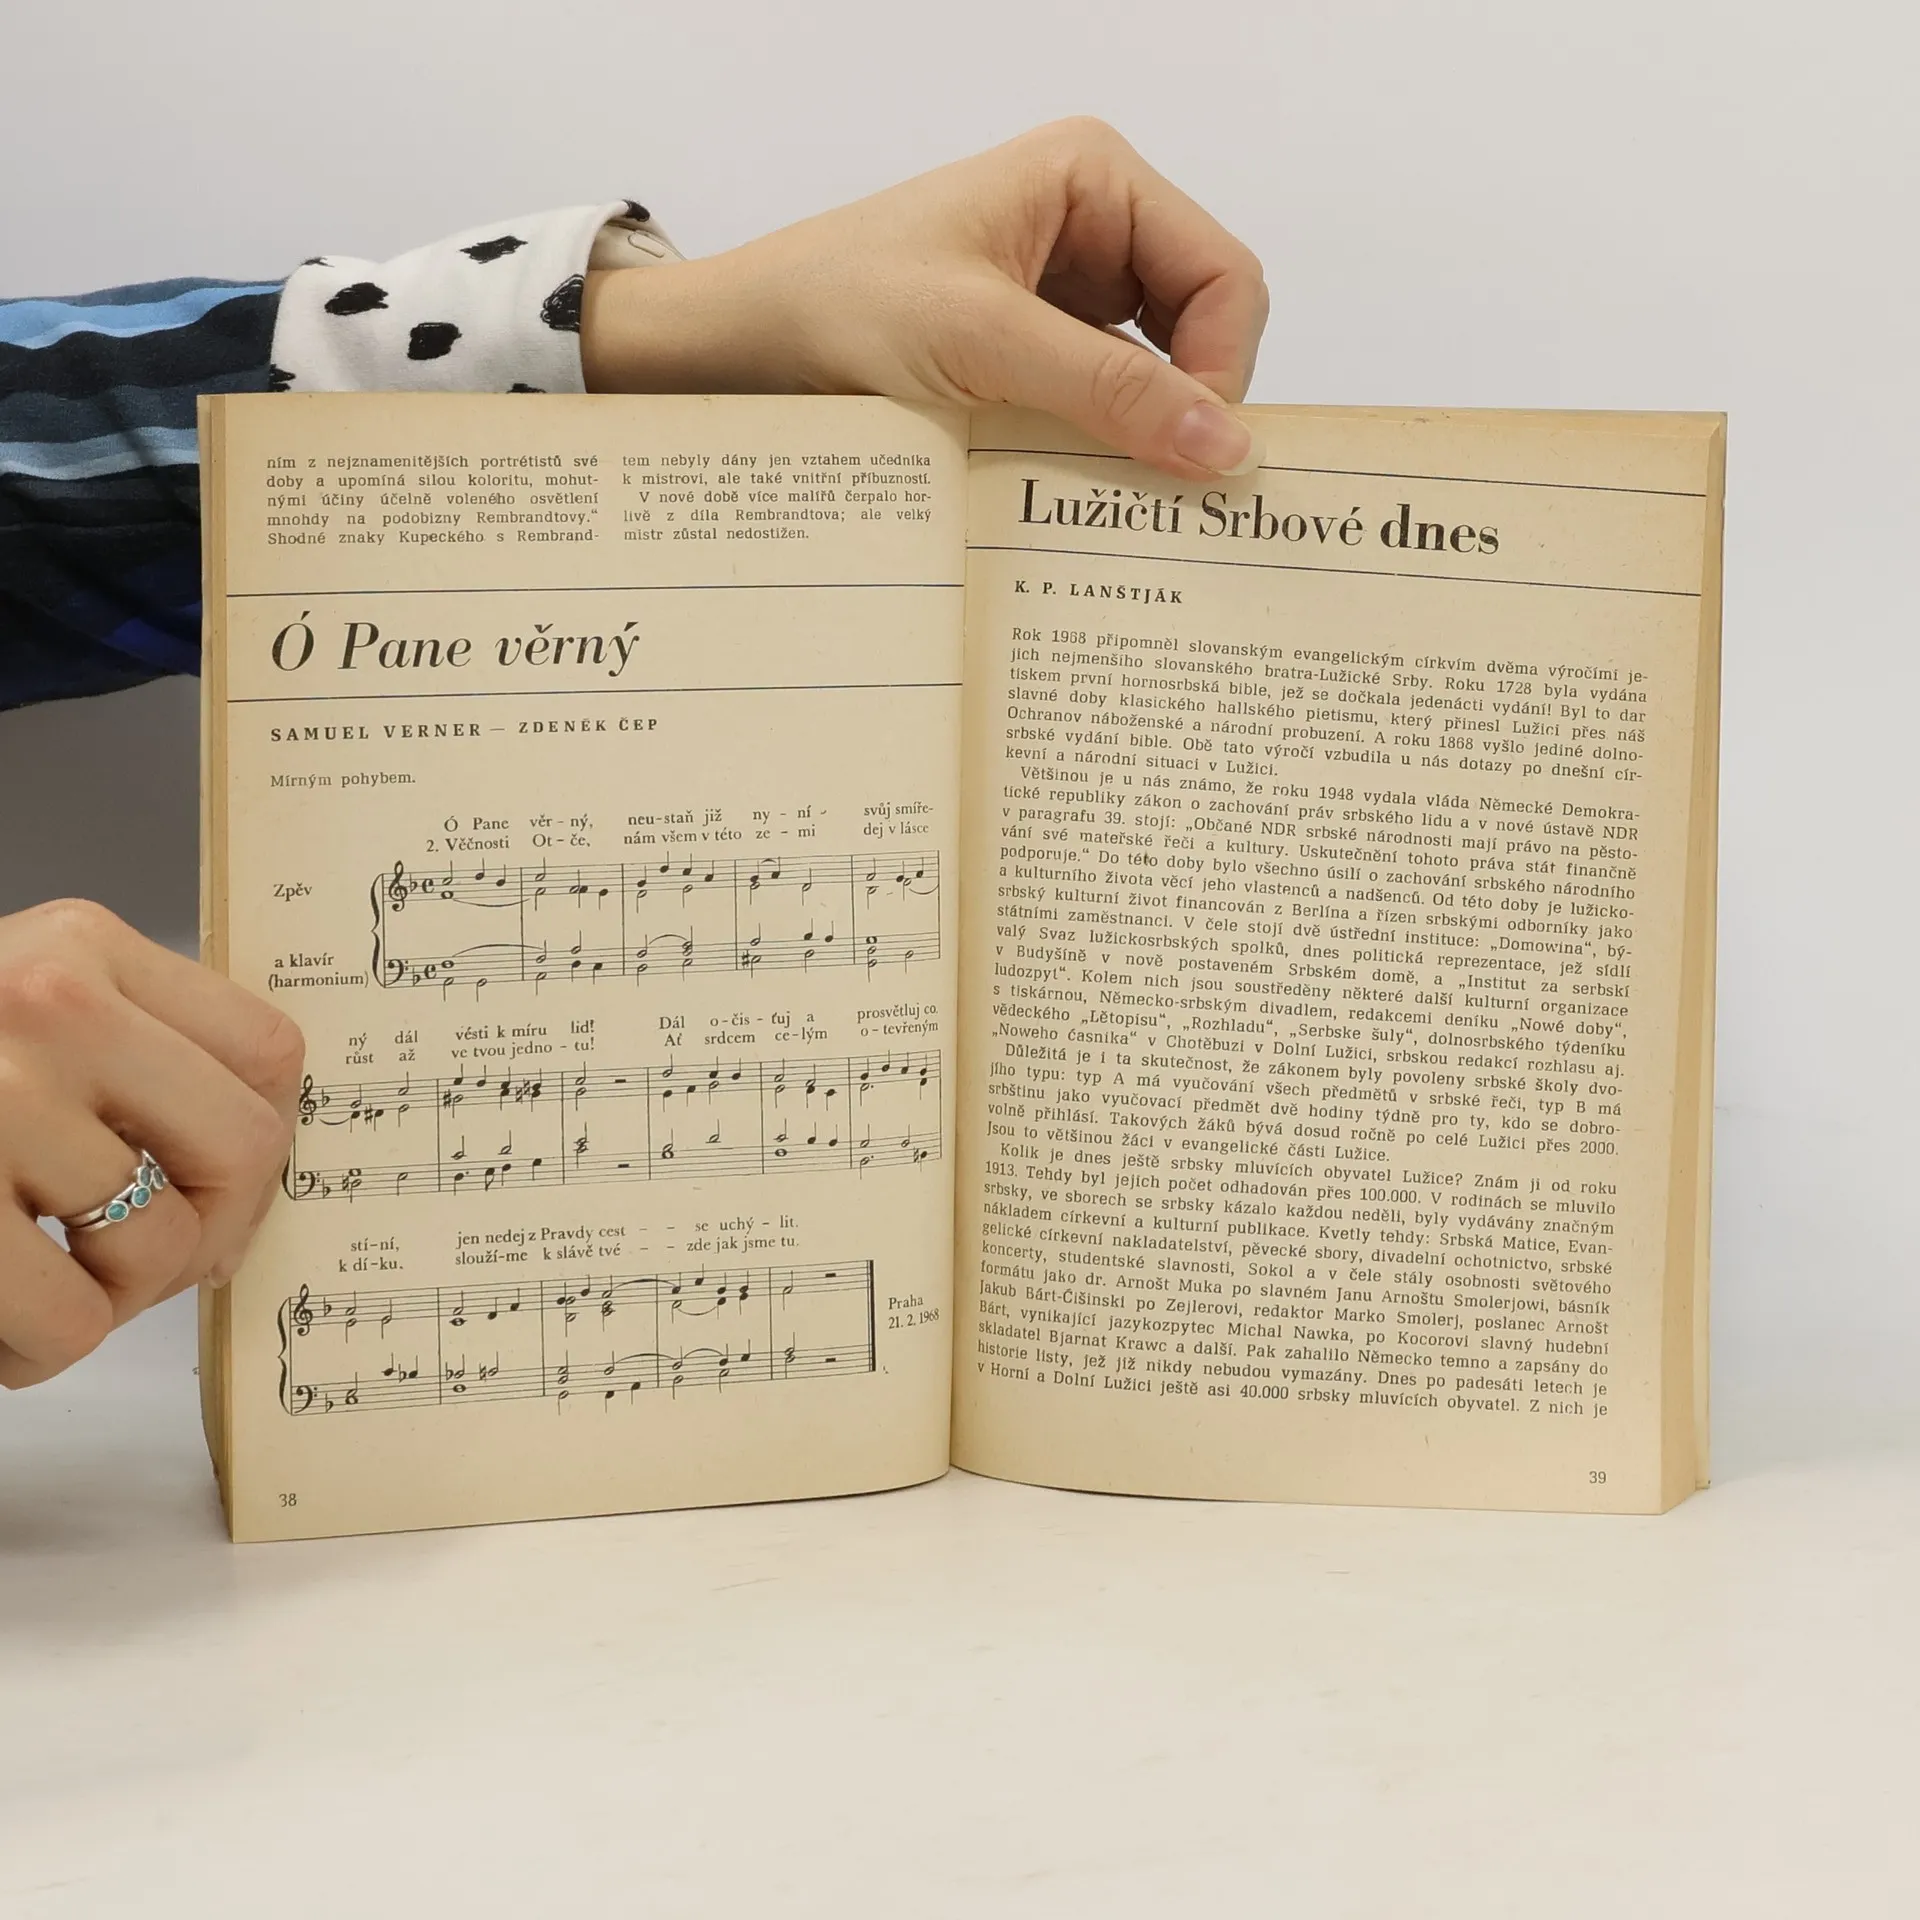 ním z nejznamenitějších portrétistů své
doby a upomíná silou koloritu, mohut-
nými účiny účelně voleného osvětlení
mnohdy na podobizny Rembrandtovy.“
Shodné znaky Kupeckého s Rembrand-
tem nebyly dány jen vztahem učedníka
k mistrovi, ale také vnitřní příbuzností.
V nové době více malířů čerpalo hor-
livě z díla Rembrandtova; ale velký
mistr zůstal nedostižen.
Ó Pane věrný
SAMUEL VERNER — ZDENĚK ČEP
Mírným pohybem.
Ó Pane věr – ný, neu-staň již ny – ní svůj smíře-
2. Věčnosti Ot – če, nám všem v této ze – mi dej v lásce
Zpěv
a klavír
(harmonium)
ný dál vésti k míru lid! Dál o – čis – ťuj a prosvětluj co
růst až ve tvou jedno – tu! Ať srdcem ce – lým o – tevřeným
stí–ní, jen nedej z Pravdy cest – – se uchý – lit.
k dí–ku. slouží–me k slávě tvé – – zde jak jsme tu.
Praha
21. 2. 1968
38
Lužičtí Srbové dnes
K. P. LANŠTJÁK
Rok 1968 připomněl slovanským evangelickým církvím dvěma výročími je-
jich nejmenšího slovanského bratra-Lužické Srby. Roku 1728 byla vydána
tiskem první hornosrbská bible, jež se dočkala jedenácti vydání! Byl to dar
slavné doby klasického hallského pietismu, který přinesl Lužici přes náš
Ochranov náboženské a národní probuzení. A roku 1868 vyšlo jediné dolno-
srbské vydání bible. Obě tato výročí vzbudila u nás dotazy po dnešní cír-
kevní a národní situaci v Lužici.
Většinou je u nás známo, že roku 1948 vydala vláda Německé Demokra-
tické republiky zákon o zachování práv srbského lidu a v nové ústavě NDR
v paragrafu 39. stojí: „Občané NDR srbské národnosti mají právo na pěsto-
vání své mateřské řeči a kultury. Uskutečnění tohoto práva stát finančně
podporuje.“ Do této doby bylo všechno úsilí o zachování srbského národního
a kulturního života věcí jeho vlastenců a nadšenců. Od této doby je lužicko-
srbský kulturní život financován z Berlína a řízen srbskými odborníky jako
státními zaměstnanci. V čele stojí dvě ústřední instituce: „Domowina“, bý-
valý Svaz lužickosrbských spolků, dnes politická reprezentace, jež sídlí
v Budyšíně v nově postaveném Srbském domě, a „Institut za serbski
ludozpyt“. Kolem nich jsou soustředěny některé další kulturní organizace
s tiskárnou, Německo-srbským divadlem, redakcemi deníku „Nowé doby“,
vědeckého „Lětopisu“, „Rozhladu“, „Serbske šuly“, dolnosrbského týdeníku
„Noweho časnika“ v Chotěbuzi v Dolní Lužici, srbskou redakcí rozhlasu aj.
Důležitá je i ta skutečnost, že zákonem byly povoleny srbské školy dvo-
jího typu: typ A má vyučování všech předmětů v srbské řeči, typ B má
srbštinu jako vyučovací předmět dvě hodiny týdně pro ty, kdo se dobro-
volně přihlásí. Takových žáků bývá dosud ročně po celé Lužici přes 2000.
Jsou to většinou žáci v evangelické části Lužice.
Kolik je dnes ještě srbsky mluvících obyvatel Lužice? Znám ji od roku
1913. Tehdy byl jejich počet odhadován přes 100.000. V rodinách se mluvilo
srbsky, ve sborech se srbsky kázalo každou neděli, byly vydávány značným
nákladem církevní a kulturní publikace. Kvetly tehdy: Srbská Matice, Evan-
gelické církevní nakladatelství, pěvecké sbory, divadelní ochotnictvo, srbské
koncerty, studentské slavnosti, Sokol a v čele stály osobnosti světového
formátu jako dr. Arnošt Muka po slavném Janu Arnoštu Smolerjowi, básník
Jakub Bárt-Ćišinski po Zejlerovi, redaktor Marko Smolerj, poslanec Arnošt
Bárt, vynikající jazykozpytec Michal Nawka, po Kocorovi slavný hudební
skladatel Bjarnat Krawc a další. Pak zahalilo Německo temno a zapsány do
historie listy, jež již nikdy nebudou vymazány. Dnes po padesáti letech je
v Horní a Dolní Lužici ještě asi 40.000 srbsky mluvících obyvatel. Z nich je
39